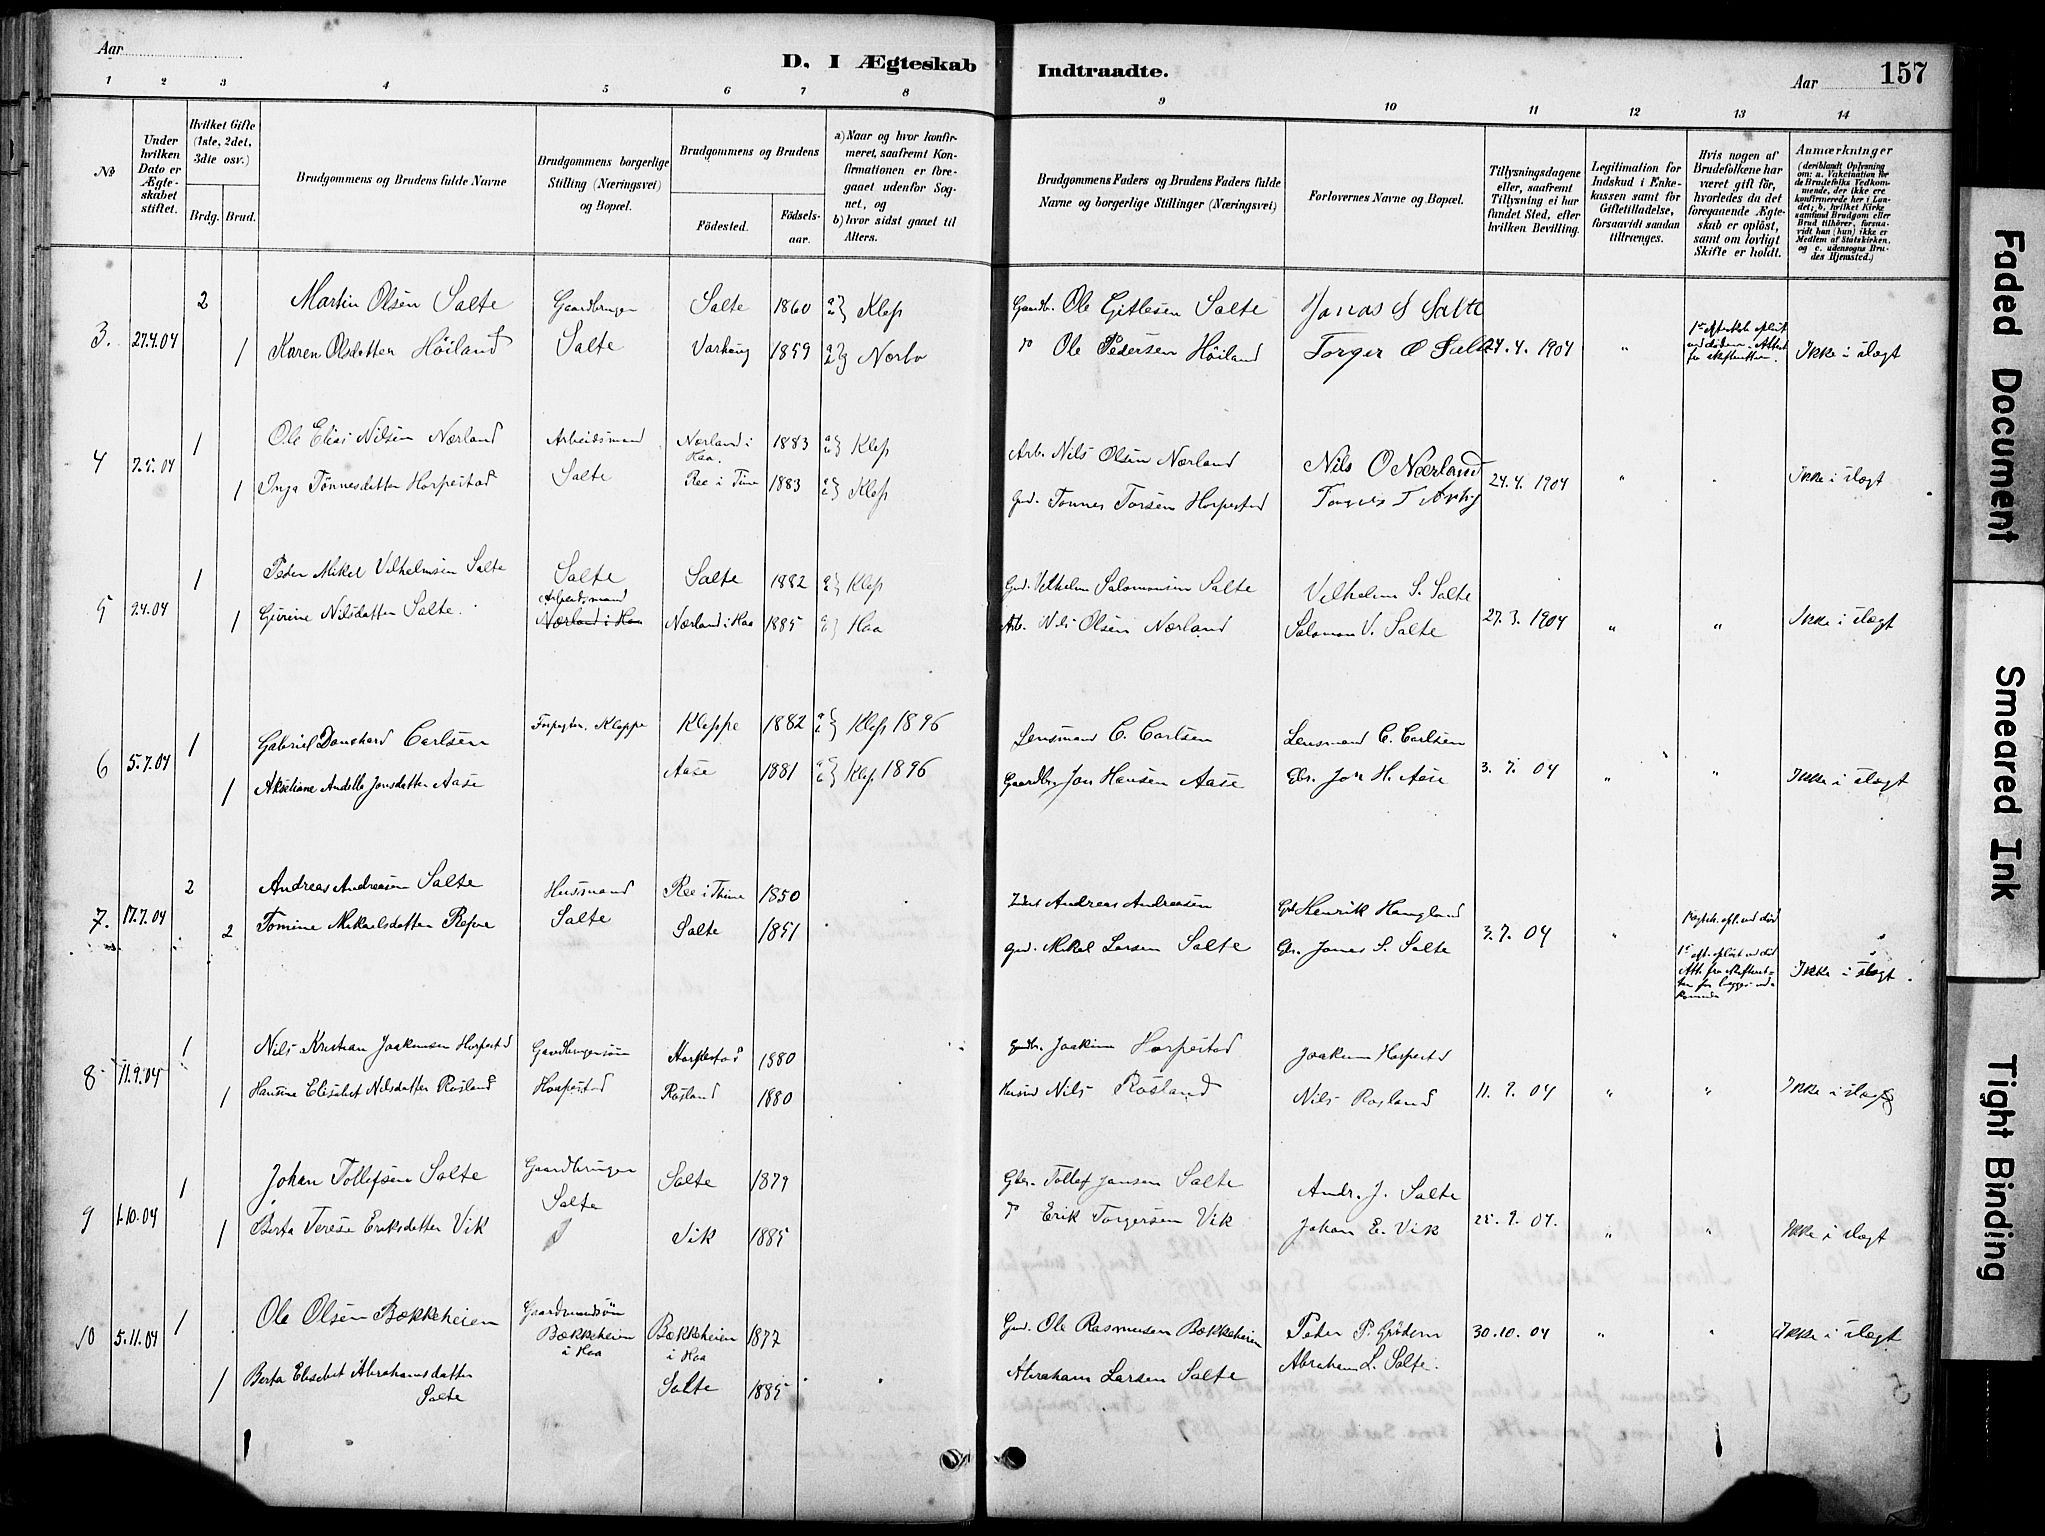 Aar
D. I Ægteskab Indtraadte.
Aar
157
1 2 3 4 5 6 7 8 9 10 11 12 13 14
№
Under hvilken Dato er Ægteskabet stiftet.
Hvilket Gifte (1ste, 2det, 3die osv.)
Brdg. Brud.
Brudgommens og Brudens fulde Navne
Brudgommens borgerlige Stilling (Næringsvei) og Bopæl.
Brudgommens og Brudens
Födested.
Födselsaar.
a) Naar og hvor konfirmeret, saafremt Konfirmationen er foregaaet udenfor Sognet, og
b) hvor sidst gaaet til Alters.
Brudgommens Faders og Brudens Faders fulde Navne og borgerlige Stillinger (Næringsvei)
Forlovernes Navne og Bopæl.
Tillysningsdagene eller, saafremt Tillysning ei har fundet Sted, efter hvilken Bevilling.
Legitimation for Indskud i Enkekassen samt for Giftetilladelse, forsaavidt saadan tiltrænges.
Hvis nogen af Brudefolkene har været gift för, hvorledes da det foregaaende Ægteskab er oplöst, samt om lovligt Skifte er holdt.
Anmærkninger (deriblandt Oplysning om: a. Vakcination for de Brudefolks Vedkommende, der ikke ere konfirmerede her i Landet; b. hvilket Kirkesamfund Brudgom eller Brud tilhörer, forsaavidt han (hun) ikke er Medlem af Statskirken, og c. udensogns Brudes Hjemsted.)
3. 27.4.04 2 Martin Olsen Salte Gaardbruger Salte 1860 Klep Gaardb. Ole Gitlesen Salte Jonas S Salte
1 Karen Olsdatter Höiland Salte Varhaug 1859 Nærbo do Ole Pedersen Höiland Torger O Salte 24.4.1904 " Ikke i slægt
4 7.5.04 1 Ole Elias Nilsen Nærland Arbeidsmand Nærland i Haa. 1883 Klep Arb. Nils Olsen Nærland Nils O Nærland
1 Inga Tönnesdatter Horpestad Salte Ree i Time 1883 Klep Gmd. Tönnes Torsen Horpestad 24.4.1904 " Ikke i slægt
5 2.4.04 1 Peder Mikal Vilhelmsen Salte Salte Salte 1882 Klep Gmd. Vilhelm Salomonsen Salte Vilhelm S. Salte
Arbeidsmand
1 Gurine Nilsdatter Salte. Nærland i Haa Nærland i Haa 1885 Haa Arb. Nils Olsen Nærland Salomon V. Salte 27.3.1904 " " Ikke i slægt
6 5.7.04 1 Gabriel Carlsen Kleppe Kleppe 1882 Klep 1896 Lensmand C. Carlsen Lensmand C. Carlsen
1 Akseliane Jonsdatter Aase Aase 1881 Klep 1896 Gaardbr. Jon Hansen Aase Gbr. Jon H. Aase 3.7.04 " " Ikke i slægt
7. 17.7.04 2 Andreas Andreasen Salte Husmand Ree i Thime 1850 Andreas Andreasen Henrik Haugland
2 Tomine Mikaelsdatter Refve Salte Salte 1851 Gmd. Mikal Larsen Salte Gbr. Jonas S. Salte 3.7.04 " Ikke i slægt
8 11.9.04 1 Nils Kristian Joakimsen Horpestad Gaardbrugersön Horpestad 1880 Gaardbr. Joakim Horpestad Joakim Horpestad
1 Hansine Elisabet Nilsdatter Rosland Horpestad Rosland 1880 Husmd Nils Rosland Nils Rosland 11.9.04 " " Ikke i slægt
9 1.10.04 1 Johan Tollefsen Salte Gaardbruger Salte 1879 Gbr. Tollef Jansen Salte Andr. J. Salte
Salte
1 Berta Terese Eriksdatter Vik Vik 1885 do Erik Torgersen Vik Johan E. Vik 25.9.04. " " Ikke i slægt
10 5.11.04 1 Ole Olsen Bækkeheien Gaardmandsön Bækkeheien i Haa Bækkeheien i Haa 1877 Gmd. Ole Rasmussen Bækkeheien Peder P. Gröden 30.10.04 " " Ikke i slægt
1 Berta Elisabet Abrahamsdatter Salte Salte 1885 Abraham Larsen Salte Abraham L. Salte.
Faded Document
Smeared Ink
Tight Binding